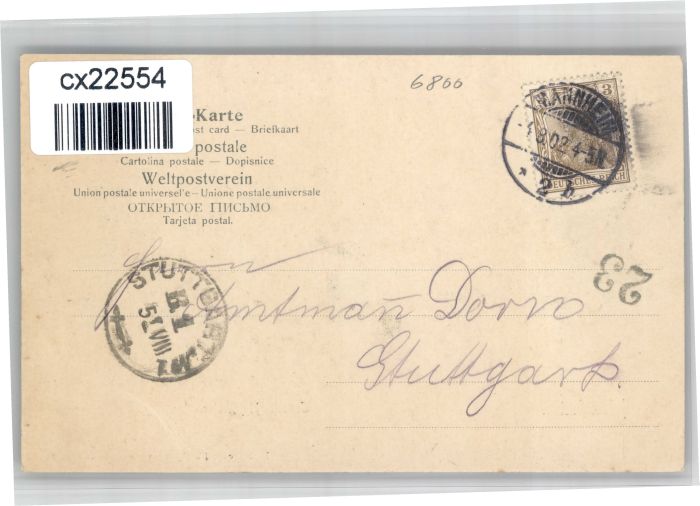 cx22554
6800
-Karte
ost card — Briefkaart
postale
Cartolina postale — Dopisnice
Weltpostverein
Union postale universelle - Unione postale universale
ОТКРЫТОЕ ПИСЬМО
Tarjeta postal.
3
DEUTSCHES REICH
MANNHEIM
8.02.4-5N
* 2 b
23
STUTTGART
5 VIII
Herrn
Amtmañ Dorn
Stuttgart.